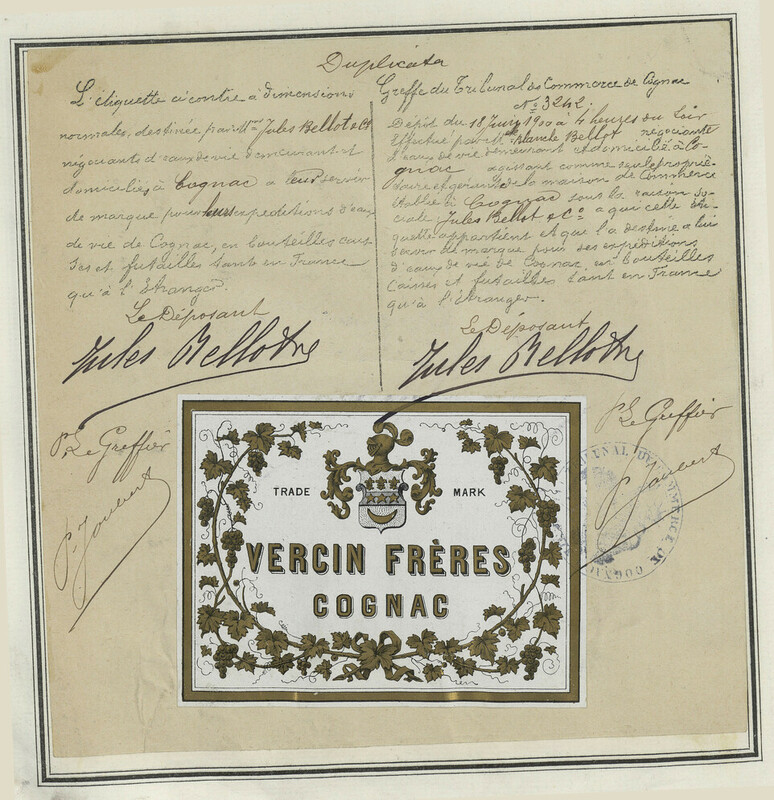 Duplicata
L'étiquette ci contre à dimensions
normales, destinée par Mrs Jules Bellot & Co
négociants d'eaux de vie demeurant et
domiciliés à Cognac a leur servir
de marque pour leurs expéditions d'eaux
de vie de Cognac, en bouteilles cais
ses et futailles tant en France
qu'à l'Etranger.
Le Déposant
Jules Bellot & Co
P. Le Greffier
P. Joubert
Greffe du Tribunal de Commerce de Cognac
No 3242
Dépôt du 18 Juin 1900 à 4 heures du soir
Effectué par Bellot négociante
d'eaux de vie demeurant et domiciliée à Co-
gnac agissant comme seule proprié-
taire et gérante de la maison de Commerce
établie à Cognac sous la raison so-
ciale Jules Bellot & Co a qui cette éti-
quette appartient et que l'a destinée a lui
servir de marque pour ses expéditions
d'eaux de vie de Cognac en bouteilles
Caisses et futailles tant en France
qu'à l'étranger.
Le Déposant
Jules Bellot & Co
P. Le Greffier
P. Joubert
TRIBUNAL DE COMMERCE DE COGNAC
TRADE MARK
VERCIN FRÈRES
COGNAC